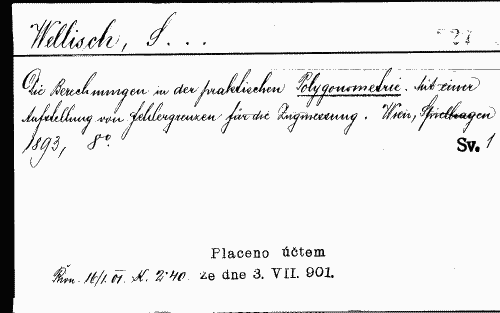 Wellisch, S. . .
Die Berechnungen in der praktischen Polygonometrie. Mit einer
Aufstellung von Fehlergrenzen für die Zugmessung. Wien, Spielhagen
1893, 8°. Sv. 1
Placeno účtem
16/1. 01. K. 2·40. ze dne 3. VII. 901.